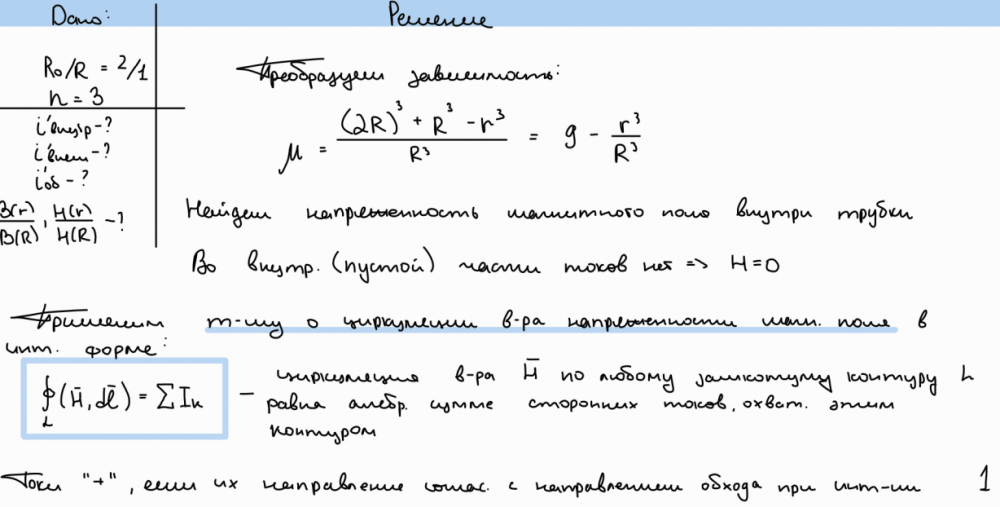 Дано:
Решение
R₀/R = 2/1
n = 3
i'внутр - ?
i'внеш - ?
i'об - ?
B(r)/B(R), H(r)/H(R) - ?
Преобразуем зависимость:
μ = ((2R)³ + R³ - r³)/R³ = 9 - r³/R³
Найдем напряженность магнитного поля внутри трубки
Во внутр. (пустой) части токов нет => H = 0
Применим т-му о циркуляции в-ра напряженности магн. поля в
инт. форме:
∮_L (H̄, dl̄) = ΣIₖ — циркуляция в-ра H̄ по любому замкнутому контуру L
равна алгебр. сумме сторонних токов, охват. этим
контуром
Токи "+", если их направление соглас. с направлением обхода при инт-ии
1